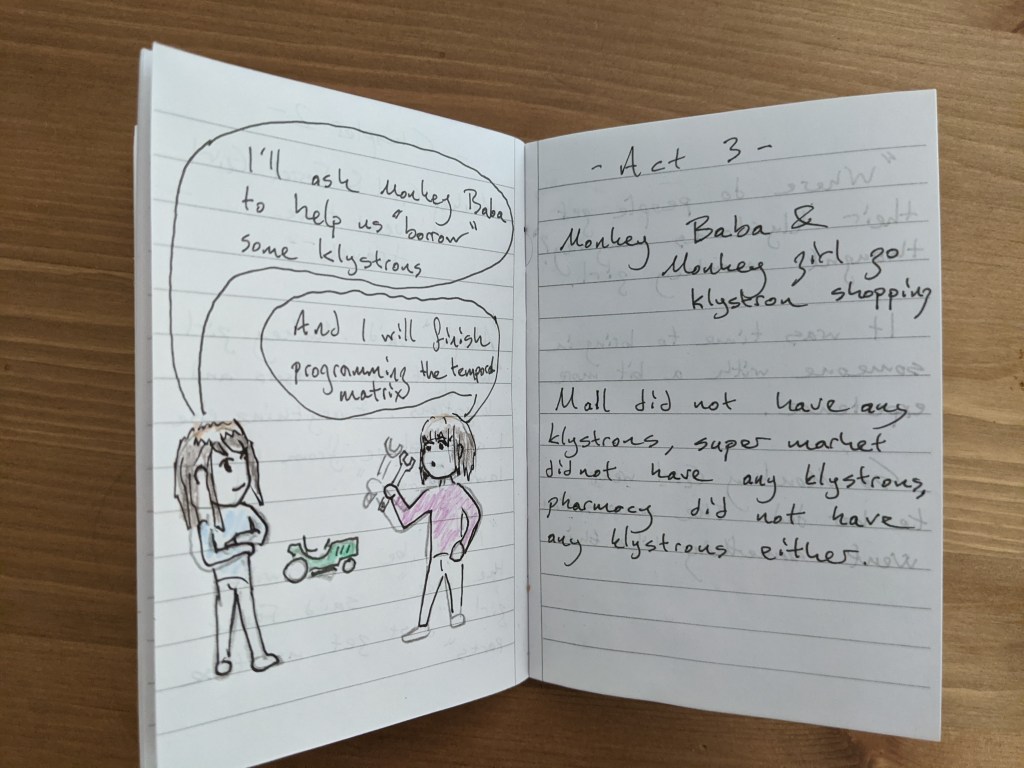 I'll ask Monkey Baba
to help us "borrow"
some klystrons
And I will finish
programming the temporal
matrix
- Act 3 -
Monkey Baba &
Monkey girl go
klystron shopping
Mall did not have any
klystrons, super market
did not have any klystrons,
pharmacy did not have
any klystrons either.